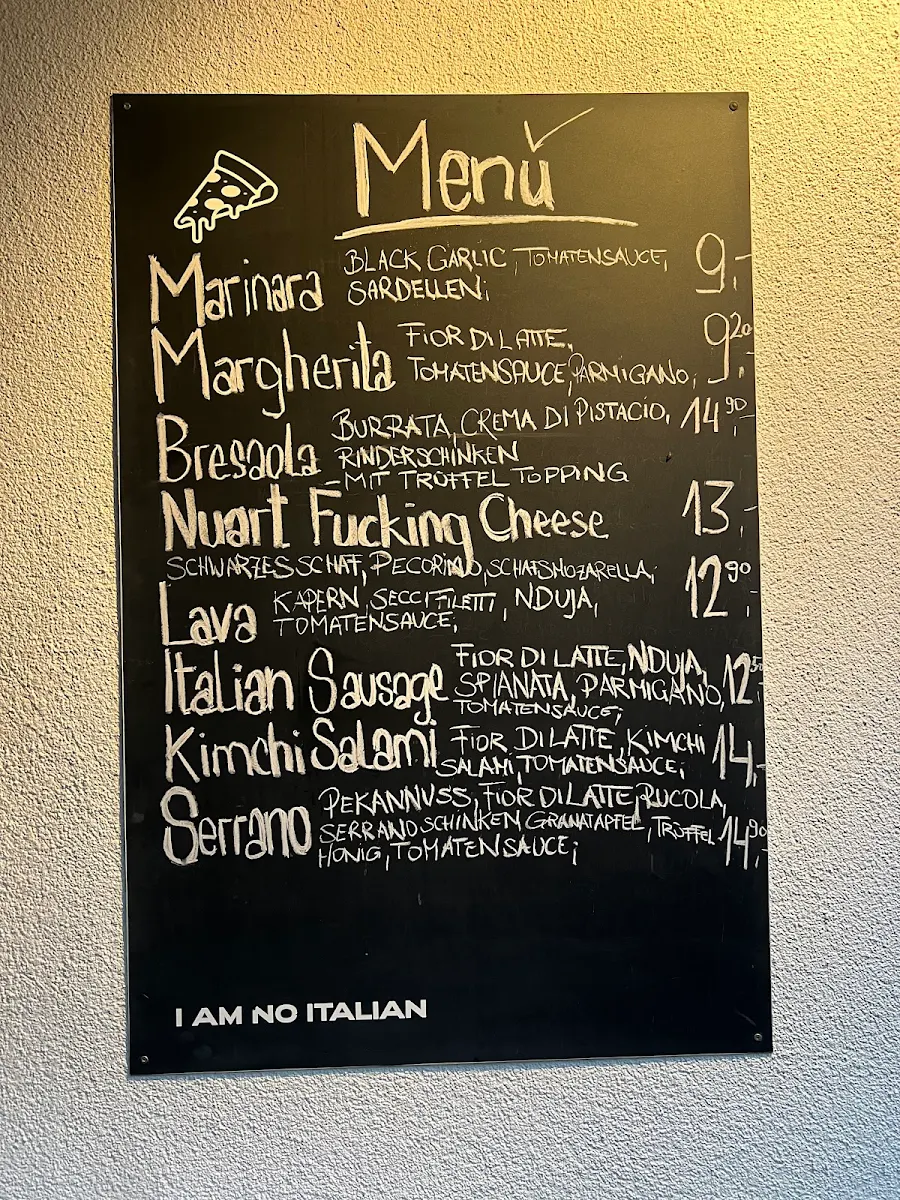 Menù
Marinara BLACK GARLIC, TOMATENSAUCE, 9,-
SARDELLEN;
Margherita FIOR DI LATTE, 9,20
TOMATENSAUCE, PARMIGANO,
Bresaola BURRATA, CREMA DI PISTACIO, 14,90
RINDERSCHINKEN
MIT TRÜFFEL TOPPING
Nuart Fucking Cheese 13,-
SCHWARZES SCHAF, PECORINO, SCHAFSMOZARELLA,
Lava KAPERN, SECCI FILETTI, NDUJA, 12,90
TOMATENSAUCE,
Italian Sausage FIOR DI LATTE, NDUJA,
SPIANATA, PARMIGANO, 12,50
TOMATENSAUCE,
Kimchi Salami FIOR DI LATTE, KIMCHI 14,-
SALAMI, TOMATENSAUCE,
Serrano PEKANNUSS, FIOR DI LATTE, RUCOLA,
SERRANO SCHINKEN, GRANATAPFEL, TRÜFFEL 14,90
HONIG, TOMATENSAUCE,
I AM NO ITALIAN